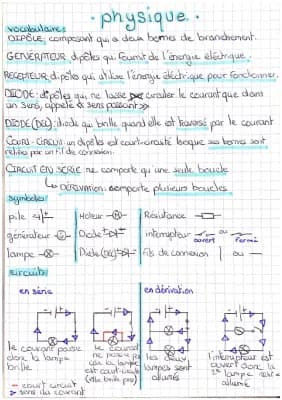 · physique ·
vocabulaire:
DIPÔLE: composant qui a deux bornes de branchement.
GÉNÉRATEUR: dipôles qui fournit de l'énergie éléctrique.
RECEPTEUR: dipôles qui utilise l'énergie éléctrique pour fonctionner.
DIODE: dipôles qui ne laisse circuler le courant que dans
un sens, appelé « sens passant »
DIODE (DEL): diode qui brille quand elle est traversé par le courant
COURT-CIRCUIT: un dipôles est court-circuité lorsque ses bornes sont
reliés par un fil de connexion.
CIRCUIT EN SÉRIE: ne comporte qu'une seule boucle
↳ DÉRIVATION: comporte plusieurs boucles
symboles
pile | Moteur M | Résistance
générateur G | Diode | interrupteur ou
ouvert fermé
lampe | Diode (DEL) | fils de connexion | ou —
circuits
en série
en dérivation
le courant passe
donc la lampe
brille
le courant
ne passe pas
la lampe
est court-circuité
(elle brille pas)
les deux
lampes sont
allumés
l'interrupteur est
ouvert donc la
lampe reste
allumé
— court circuit
▷ sens du courant